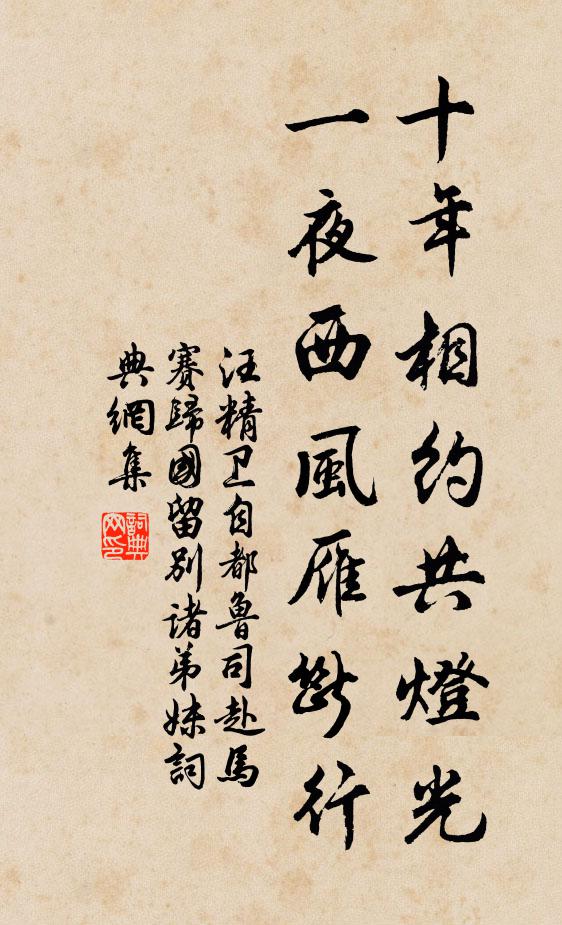 十年相约共燈光
一夜西風雁断行
汪精卫自都魯司赴馬
賽歸國留别诸弟妹詞
典網集
詞典
网印